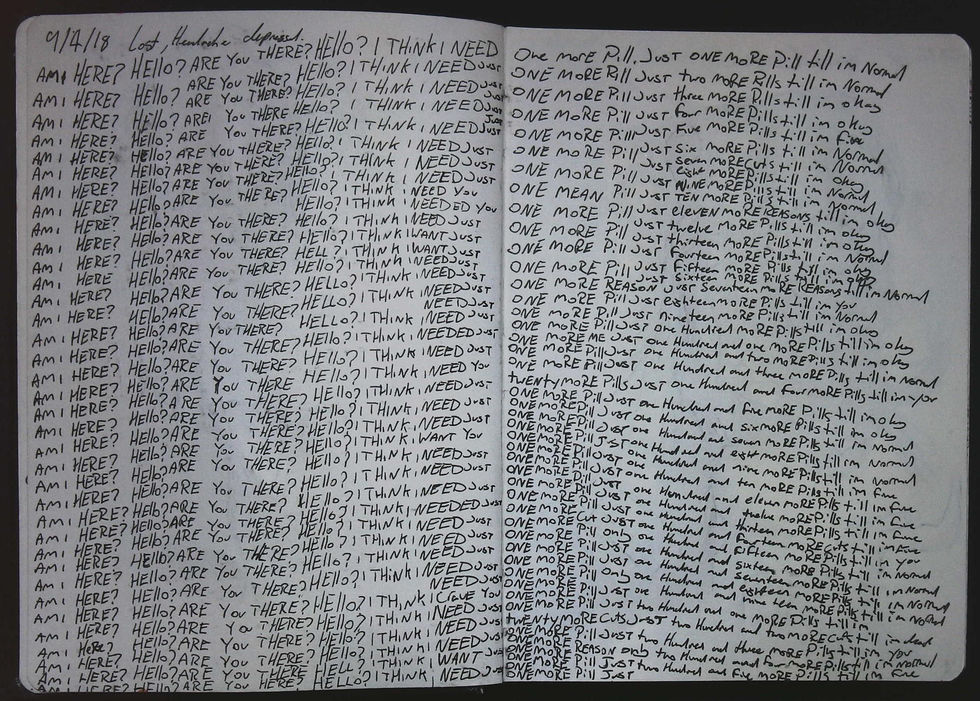 9/4/18 Lost, Headache depressed.
AM I HERE? HEllo? ARE YOU THERE? HEllo? I THINK I NEED
AM I HERE? HEllo? ARE YOU THERE? HEllo? I THINK I NEED JUST
AM I HERE? HEllo? ARE YOU THERE? HEllo? I THINK I NEED JUST
AM I HERE? HEllo? ARE YOU THERE HEllo? I THINK I NEED JUST
AM I HERE? HEllo? ARE YOU THERE? HEllo? I THINK I NEED JUST
AM I HERE? HEllo? ARE YOU THERE? HEllo? I THINK I NEED JUST
AM I HERE? HEllo? ARE YOU THERE? HEllo? I THINK I NEED JUST
AM I HERE? HEllo? ARE YOU THERE? HEllo? I THINK I NEED YOU
AM I HERE? HEllo? ARE YOU THERE? HEllo? I THINK I NEEDED YOU
AM I HERE? HEllo? ARE YOU THERE? HEllo? I THINK I NEED JUST
AM I HERE? HEllo? ARE YOU THERE? HEllo? I THINK I WANT JUST
AM I HERE? HEllo? ARE YOU THERE? HELL? I THINK I WANT JUST
AM I HERE HEllo? ARE YOU THERE? HEllo? I THINK I NEED JUST
AM I HERE? HEllo? ARE YOU THERE? HELLO? I THINK I NEED JUST
AM I HERE? HEllo? ARE YOU THERE? HELLO? I THINK I NEED JUST
AM I HERE? HEllo? ARE YOU THERE? HELLO? I THINK I NEED JUST
AM I HERE? HEllo? ARE YOU THERE? HEllo? I THINK I NEEDED JUST
AM I HERE? HEllo? ARE YOU THERE HEllo? I THINK I NEED JUST
AM I HERE? HEllo? ARE YOU THERE? HEllo? I THINK I NEED YOU
AM I HERE? HEllo? ARE YOU THERE? HEllo? I THINK I NEED JUST
AM I HERE? HEllo? ARE YOU THERE? HEllo? I THINK I NEED JUST
AM I HERE? HEllo? ARE YOU THERE? HEllo? I THINK I WANT YOU
AM I HERE? HEllo? ARE YOU THERE? HEllo? I THINK I NEED JUST
AM I HERE? HEllo? ARE YOU THERE? HEllo? I THINK I NEED JUST
AM I HERE? HEllo? ARE YOU THERE? HEllo? I THINK I NEED JUST
AM I HERE? HEllo? ARE YOU THERE? HEllo? I THINK I NEED JUST
AM I HERE? HEllo? ARE YOU THERE? HEllo? I THINK I NEED JUST
AM I HERE? HEllo? ARE YOU THERE? HEllo? I THINK I NEED JUST
AM I HERE? HEllo? ARE YOU THERE? HEllo? I THINK I CRAVE YOU
AM I HERE? HEllo? ARE YOU THERE? HEllo? I THINK I NEED JUST
AM I HERE? HEllo? ARE YOU THERE? HEllo? I THINK I NEED JUST
AM I HERE? HEllo? ARE YOU THERE? HELL? I THINK I WANT JUST
AM I HERE? HEllo? ARE YOU HERE? HELLO? I THINK I NEED JUST
ONE MORE Pill, JUST ONE MORE Pill till im Normal
ONE MORE Pill JUST two MORE Pills till im Normal
ONE MORE Pill JUST three MORE Pills till im okay
ONE MORE Pill JUST four MORE Pills till im okay
ONE MORE Pill JUST Five MORE Pills till im fine
ONE MORE Pill JUST six MORE Pills till im Normal
JUST seven MORE CUTS till im Normal
ONE MORE Pill JUST eight MORE Pills till im okay
JUST NINE MORE Pills till im Normal
ONE MEAN Pill JUST TEN MORE Pills till im Normal
ONE MORE Pill JUST eleven MORE REASONS till im okay
ONE MORE Pill JUST twelve MORE Pills till im okay
ONE MORE Pill JUST thirteen MORE Pills till im Normal
JUST Fourteen MORE Pills till im okay
ONE MORE Pill JUST Fifteen MORE Pills till im
ONE MORE Pill JUST sixteen MORE Pills till im
ONE MORE REASON JUST Seventeen MORE REASONS till im Normal
ONE MORE Pill JUST eighteen MORE Pills till im you
ONE MORE Pill JUST nineteen MORE Pills till im Normal
ONE MORE Pill JUST one Hundred MORE Pills till im okay
ONE MORE ME JUST one Hundred and one MORE Pills till im okay
ONE MORE Pill JUST one Hundred and two MORE Pills till im okay
ONE MORE Pill JUST one Hundred and three MORE Pills till im Normal
twenty MORE Pills JUST one Hundred and four MORE Pills till im you
ONE MORE Pill JUST one Hundred and five MORE Pills till im okay
ONE MORE Pill JUST one Hundred and six MORE Pills till im okay
ONE MORE Pill JUST one Hundred and seven MORE Pills till im Normal
ONE MORE Pill JUST one Hundred and eight MORE Pills till im Normal
ONE MORE Pill JUST one Hundred and nine MORE Pills till im Normal
ONE MORE Pill JUST one Hundred and ten MORE Pills till im fine
ONE MORE Pill JUST one Hundred and eleven MORE Pills till im fine
ONE MORE Pill JUST one Hundred and twelve MORE Pills till im fine
ONE MORE Pill JUST one Hundred and thirteen MORE Pills till im fine
ONE MORE CUT JUST one Hundred and fourteen MORE CUTS till im fine
ONE MORE Pill only one Hundred and fifteen MORE Pills till im you
ONE MORE Pill JUST one Hundred and sixteen MORE Pills till im Normal
ONE MORE Pill Only one Hundred and seventeen MORE Pills till im
ONE MORE Pill JUST one Hundred and eighteen MORE Pills till im Normal
ONE MORE Pill JUST one Hundred and nineteen MORE Pills till im Normal
ONE MORE Pill JUST two Hundred and one MORE Pills till im fine
twenty MORE CUTS JUST two Hundred and two MORE CUTS till im dead
ONE MORE Pill JUST two Hundred and three MORE Pills till im you
ONE MORE REASON only two Hundred and four MORE Pills till im Normal
ONE MORE Pill JUST two Hundred and five MORE Pills till im fine
ONE MORE Pill JUST